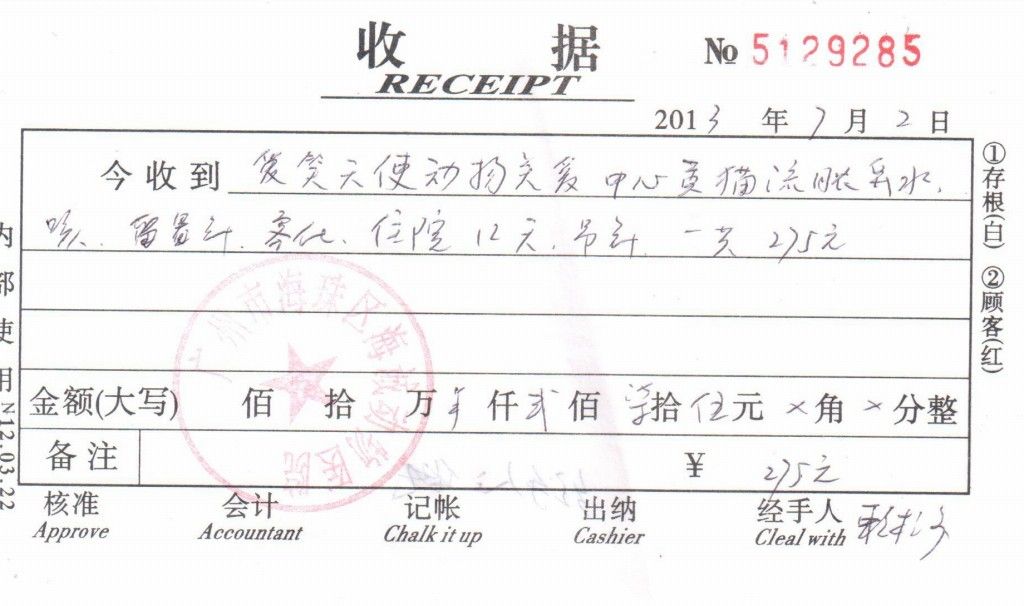 收据
RECEIPT
№ 5129285
2013年7月2日
今收到 爱笑天使动物关爱中心黄猫流眼鼻水、
咳、留置针、雾化、住院12天、吊针、一共275元
金额(大写) 佰 拾 万 仟 贰 佰 柒 拾 伍 元 × 角 × 分整
备注 ¥ 275元
核准 会计 记帐 出纳 经手人
Approve Accountant Chalk it up Cashier Cleal with
①存根(白) ②顾客(红)
内部使用 N12.03.22
广州市海珠区海 动物医院